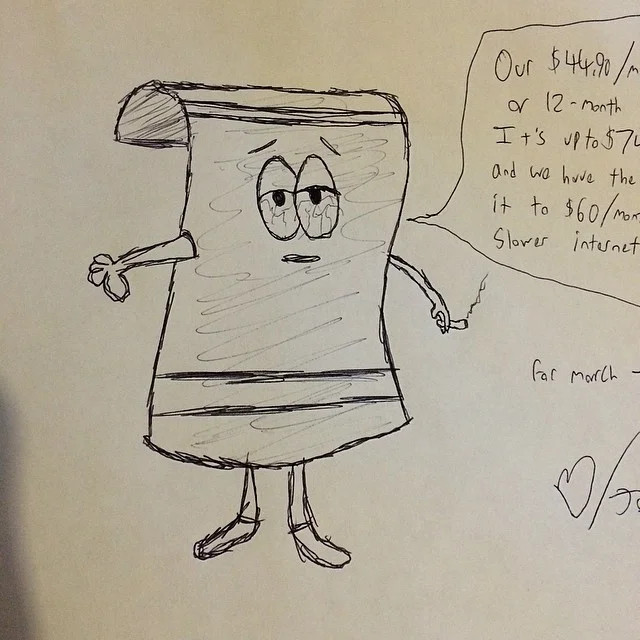 Our $44.90/m
or 12-month
It's up to $74
and we have the
it to $60/mon
Slower internet
for march -